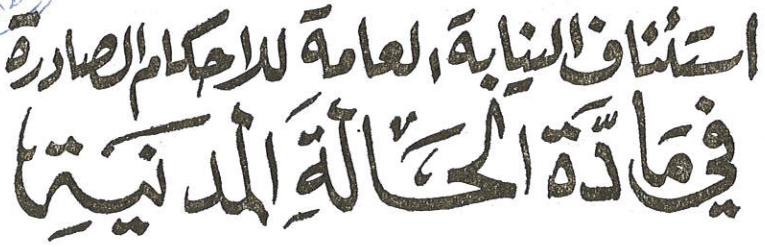 استئناف النيابة العامة للاحكام الصادرة
في مَادَّة الحَالَةِ المدنيَةِ